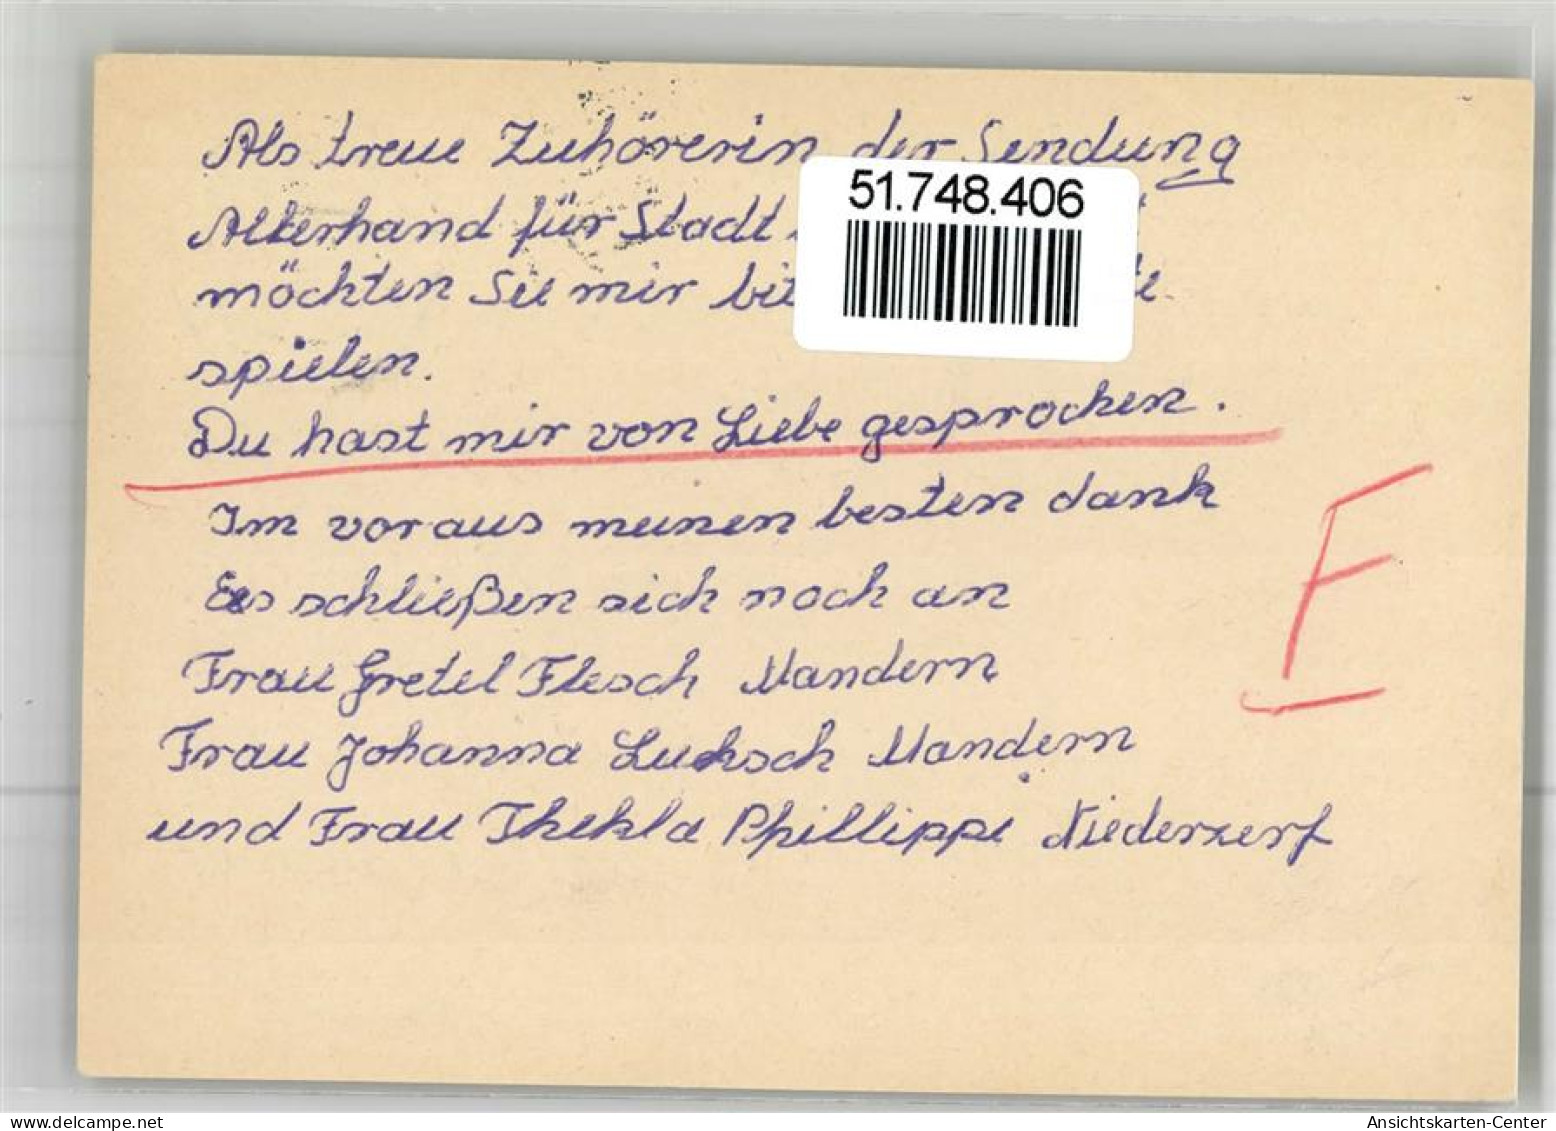 Als treue Zuhörerin der Sendung
Allerhand für Stadt
möchten Sie mir
spielen.
Du hast mir von Liebe gesprochen.
Im voraus meinen besten dank
Es schließen sich noch an
Frau Gretel Flesch Mandern
Frau Johanna Lucksch Mandern
und Frau Thekla Phillippi Niederzerf
51.748.406
F
oldthing.com
Ansichtskarten-Center